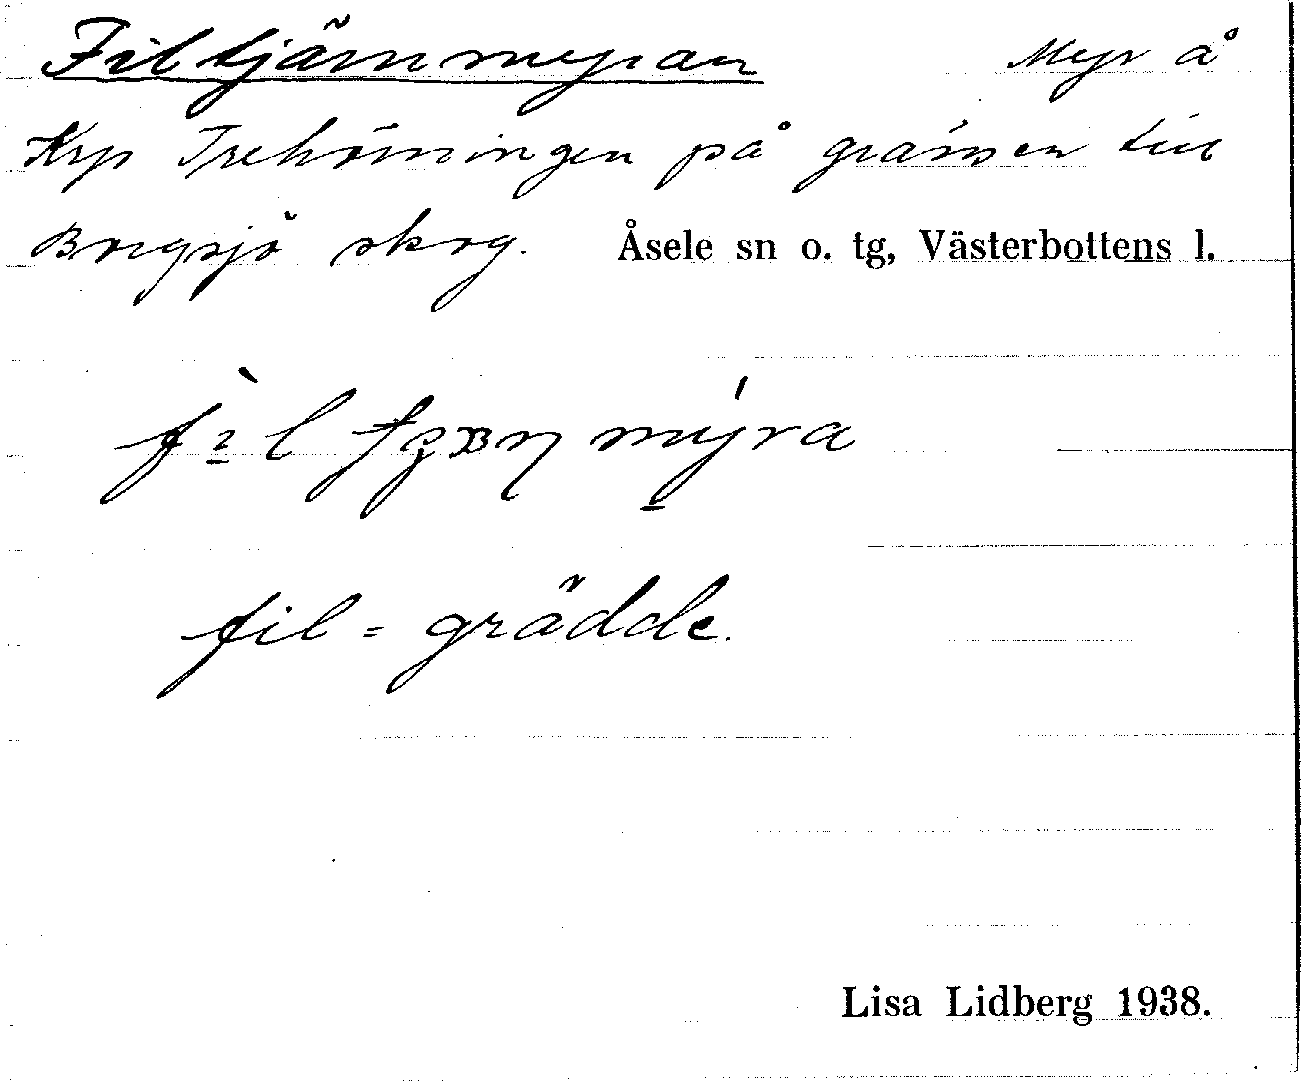 Filtjärnmyran Myr å
Krp Trehörningen på gränsen till
Borgsjö skog. Åsele sn o. tg, Västerbottens l.
myra
fil = grädde.
Lisa Lidberg 1938.